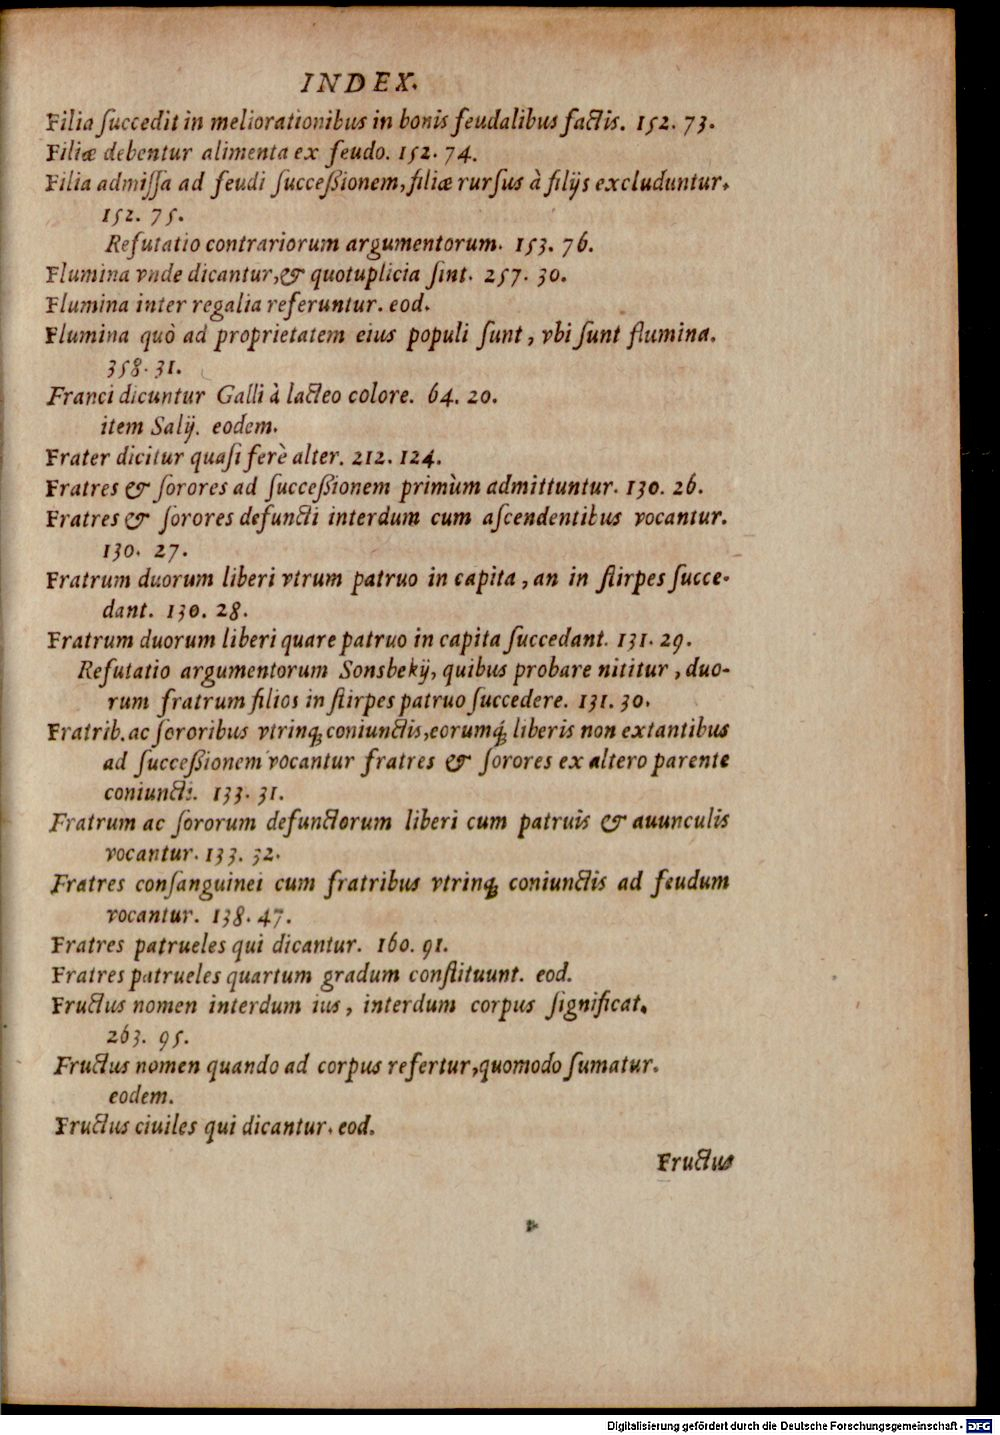 INDEX.
Filia ſuccedit in meliorationibus in bonis feudalibus factis. 152. 73.
Filiæ debentur alimenta ex feudo. 152. 74.
Filia admiſſa ad feudi ſucceßionem, filiæ rurſus à filijs excluduntur.
152. 75.
Refutatio contrariorum argumentorum. 153. 76.
Flumina vnde dicantur, & quotuplicia ſint. 257. 30.
Flumina inter regalia referuntur. eod.
Flumina quò ad proprietatem eius populi ſunt, vbi ſunt flumina.
358. 31.
Franci dicuntur Galli à lacteo colore. 64. 20.
item Salij. eodem.
Frater dicitur quaſi ferè alter. 212. 124.
Fratres & ſorores ad ſucceßionem primùm admittuntur. 130. 26.
Fratres & ſorores defuncti interdum cum aſcendentibus vocantur.
130. 27.
Fratrum duorum liberi vtrum patruo in capita, an in ſtirpes ſucce-
dant. 130. 28.
Fratrum duorum liberi quare patruo in capita ſuccedant. 131. 29.
Refutatio argumentorum Sonsbekij, quibus probare nititur, duo-
rum fratrum filios in ſtirpes patruo ſuccedere. 131. 30.
Fratrib. ac ſororibus vtrinq; coniunctis, eorumq́; liberis non extantibus
ad ſucceßionem vocantur fratres & ſorores ex altero parente
coniuncti. 133. 31.
Fratrum ac ſororum defunctorum liberi cum patruis & auunculis
vocantur. 133. 32.
Fratres conſanguinei cum fratribus vtrinq; coniunctis ad feudum
vocantur. 138. 47.
Fratres patrueles qui dicantur. 160. 91.
Fratres patrueles quartum gradum conſtituunt. eod.
Fructus nomen interdum ius, interdum corpus ſignificat.
263. 95.
Fructus nomen quando ad corpus refertur, quomodo ſumatur.
eodem.
Fructus ciuiles qui dicantur. eod.
Fructus
Digitalisierung gefördert durch die Deutsche Forschungsgemeinschaft - DFG